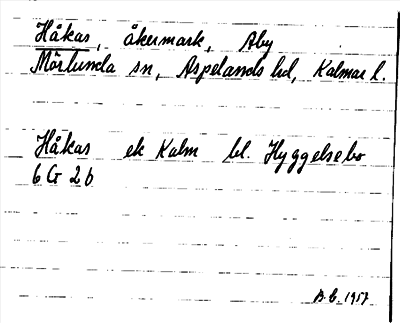 Håkas, åkermark, Åby
Mörlunda sn, Aspelands hd, Kalmar l.
Håkas ek Kalm bl. Hyggelsebo
6 G 2 b
B.G. 1957